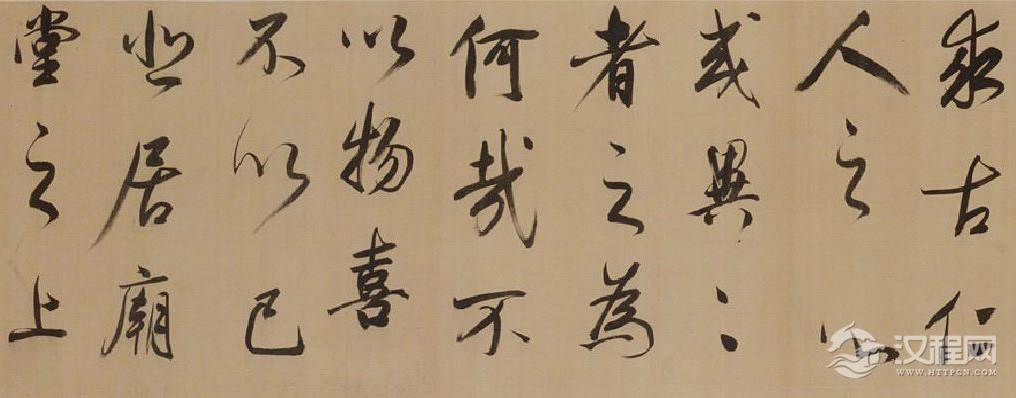 求古仁
人之心
或異二
者之為
何哉不
以物喜
不以己
悲居廟
堂之上
汉程网
WWW.HTTPCN.COM